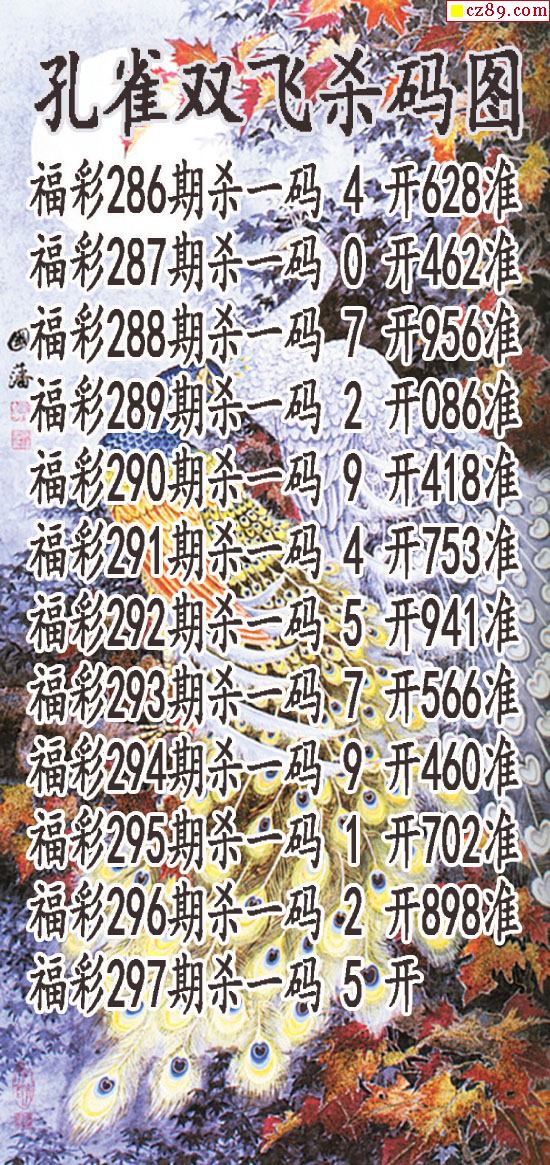 cz89.com
孔雀双飞杀码图
福彩286期杀一码 4 开628准
福彩287期杀一码 0 开462准
福彩288期杀一码 7 开956准
福彩289期杀一码 2 开086准
福彩290期杀一码 9 开418准
福彩291期杀一码 4 开753准
福彩292期杀一码 5 开941准
福彩293期杀一码 7 开566准
福彩294期杀一码 9 开460准
福彩295期杀一码 1 开702准
福彩296期杀一码 2 开898准
福彩297期杀一码 5 开